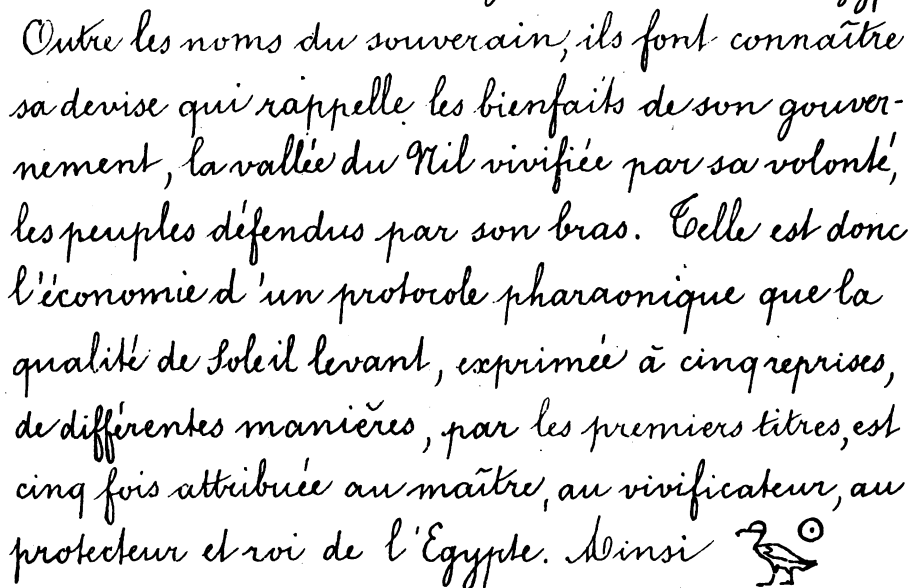 Outre les noms du souverain, ils font connaître
sa devise qui rappelle les bienfaits de son gouver-
nement, la vallée du Nil vivifiée par sa volonté,
les peuples défendus par son bras. Telle est donc
l'économie d'un protocole pharaonique que la
qualité de Soleil levant, exprimée à cinq reprises,
de différentes manières, par les premiers titres, est
cinq fois attribuée au maître, au vivificateur, au
protecteur et roi de l'Egypte. Ainsi 𓅭𓇳